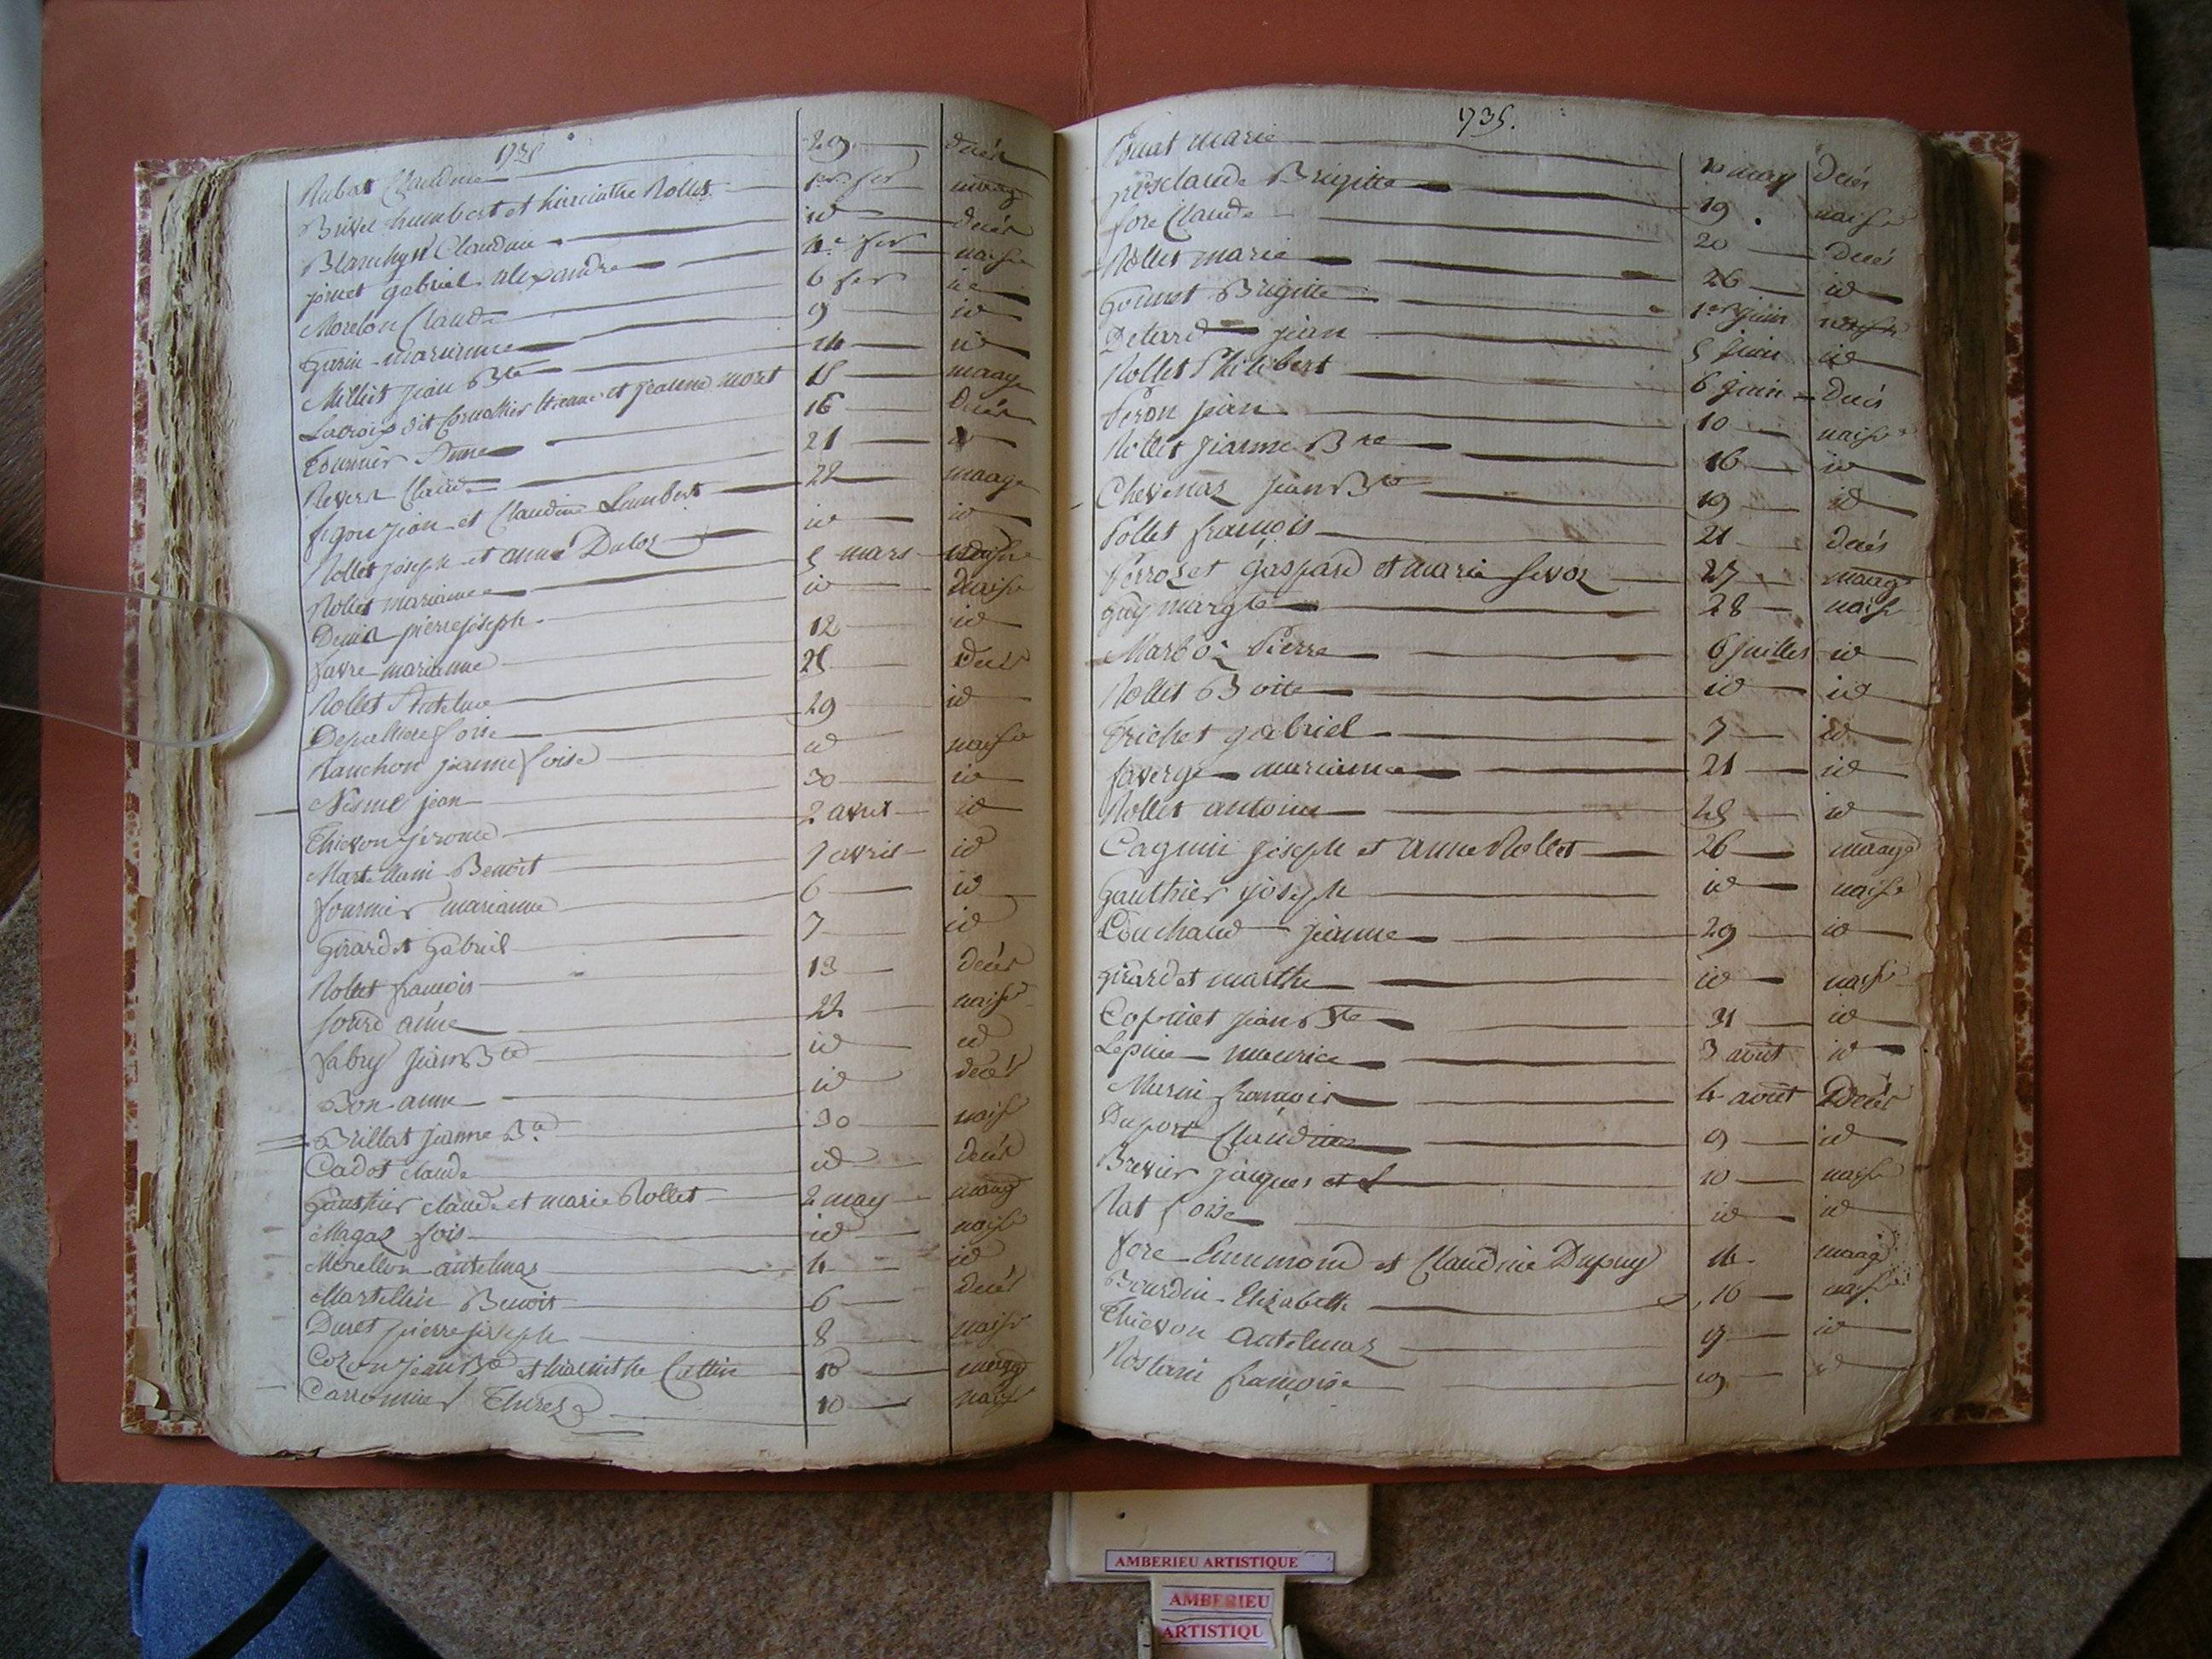 1735
Rubat Claudine 29 decés
Brivet humbert et hiacinthe Rollet 1er fev maage
Blanchyn Claudine id decés
jornet gabriel alexandre 4e fev naise
Morelon Claude 6 fev id
garin marianne 9 id
Milliet jean Bte 14 id
Lacroix dit Cornollier Etienne et jeanne moret 15 maage
Tournier Anne 16 decés
Revern Claude 21 id
figon jean et Claudine Lambert 22 maage
Rollet joseph et anne Duloz id id
Rollet marianne 5 mars
Denis pierre joseph id naise
favre marianne 12 id
Rollet Anthelme 25 decés
Depalliere foise 29 id
Ranchon jeanne foise id naise
Nesme jean 30 id
Thievon jerome 2 avril id
Martellain Benoit 7 avril id
fournier marianne 6 id
girardet gabriel 7 id
Rollet francois 13 decés
Sourd anne 22 naise
fabry jean Bte id id
Bon anne id decés
Brillat jeanne Bte 30 naise
Cadot claude id decés
gauthier claude et marie Rollet 2 may maage
Magaz fois id naise
Morellon antelmaz 4 id
Martellin Benoit 6 decés
Duret pierre joseph 8 naise
Cozon jean Bte et hiacinthe Cattin 10 maage
Carronnier Therez 10 naise
1735.
Bonat marie may decés
prosclaude Brigitte 19 naise
fore Claude 20 decés
Rollet marie 26 id
gonnet Brigitte 1er juin naise
Detard jean 5 juin id
Rollet Philibert 6 juin decés
Peron jean 10 naise
Rollet jeanne Bte 16 id
Chevenaz jean Bte 19 id
Pollet françois 21 decés
Perrozet gaspard et marie Sevoz 27 maage
guy margte 28 naise
Marboz Pierre 6 juillet id
Rollet Boite id id
Trichet gabriel 7 id
faverge marianne 21 id
Rollet antoine 25 id
Cagnin joseph et anne Rollet 26 maage
gauthier joseph id naise
Couchaud jeanne 29 id
girardet marthe id naise
Cofinet jean Bte 31 id
Lepine maurice 3 août id
Mursin francois 4 août Decés
Duport Claudine 9 id
Brevier jacques et 10 naise
Rat foise id id
fore Ennemond et Claudine Dupuy 14 maage
Bourdin Elizabeth 16 naise
Thievon Antelmaz 17 id
Rostain françoise 19 id
AMBERIEU ARTISTIQUE
AMBERIEU
ARTISTIQU